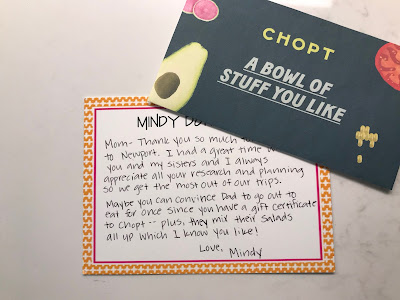 CHOPT
A BOWL OF
STUFF YOU LIKE
MINDY
Mom- Thank you so much
to Newport. I had a great time w
you and my sisters and I always
appreciate all your research and planning
so we get the most out of our trips.
Maybe you can convince Dad to go out to
eat for once since you have a gift certificate
to Chopt -- plus, they mix their salads
all up which I know you like!
Love,
Mindy